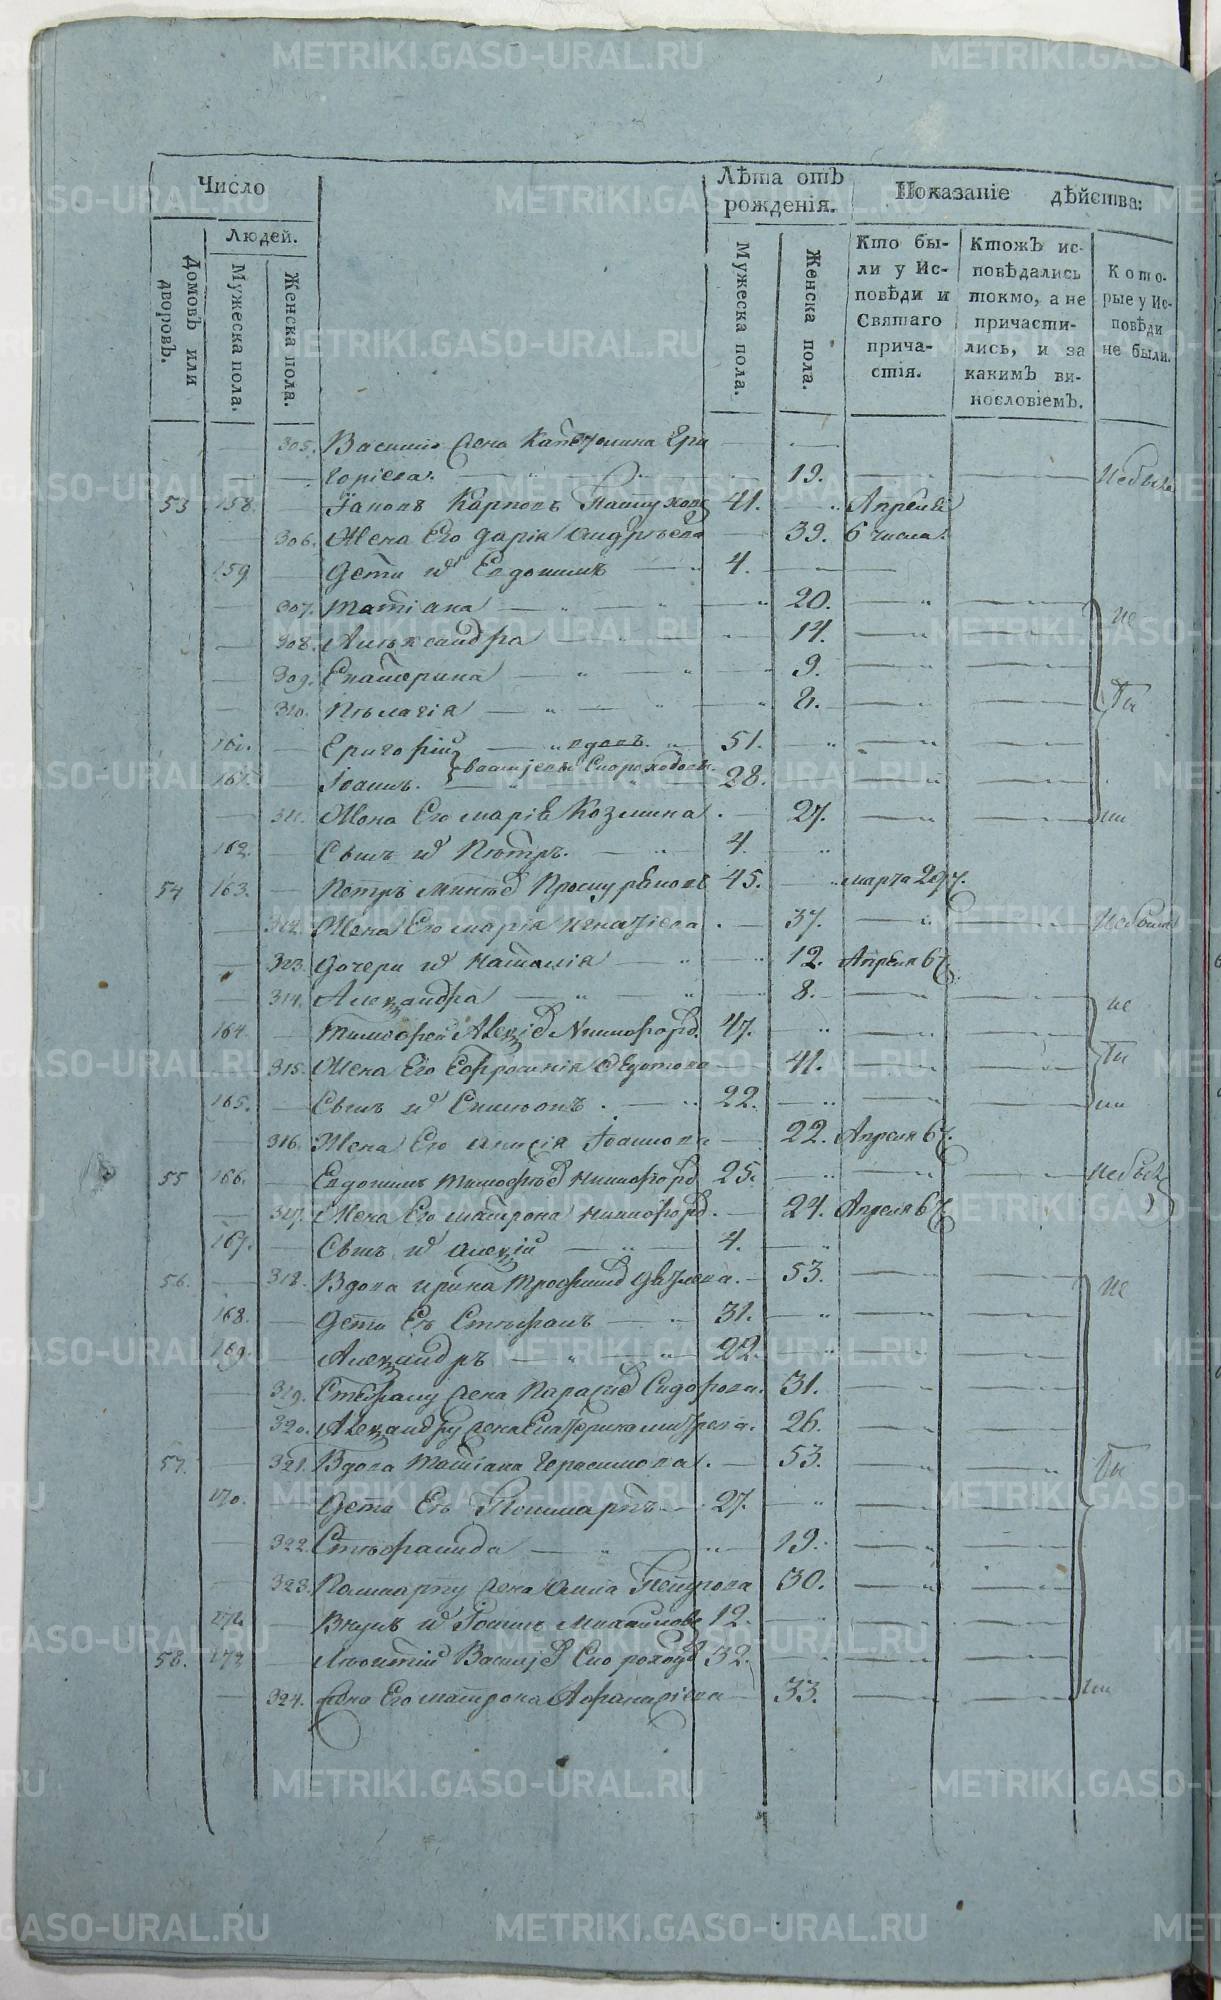 Число
Лѣта отъ рожденія.
Показаніе дѣйства:
Людей.
Домовъ или дворовъ.
Мужеска пола.
Женска пола.
Мужеска пола.
Женска пола.
Кто бы-
ли у Ис-
повѣди и
Святаго
прича-
стія.
Ктожъ ис-
повѣдались
токмо, а не
причасти-
лись, и за
какимъ ви-
нословіемъ.
Кото-
рые у Ис-
повѣди
не были.
305. Василию Жена Катерина Гри
горіева. 19. Небыла
53 158. Іаковъ Карповъ Пастухов 41. Апреля
306. Жена Его Дарія Андрѣева 39. 6 числа.
159 Дети их Евдокимъ 4.
307. Татіана 20.
308. Алеѯандра 14. не
309. Екатерина 9.
310. Пелагія 2. бы
160. Григорій вдовъ. 51.
161. Іоаннъ. Василіевы Скороходовы. 28.
311. Жена Его Марія Козмина. 27. ли
162. Сынъ их Петръ. 4.
54 163. Петръ Проскуряковъ 45. марта 29 ч.
312. Жена Его Марія Игнатіева. 37. Небыла
313. Дочери их Наталія 12. Апреля 6 ч.
314. Алеѯандра 8. не
164. Тимофей Алеѯіев Никифоров. 47.
315. Жена Его Ефросинія Федотова 41. бы
165. Сынъ их Симеонъ. 22. ли
316. Жена Его Анисія Іоаннова 22. Апреля 6 ч.
55 166. Евдокимъ Тимофѣев Никифоров 25. Небылъ
317. Жена Его Матрона Никифоров. 24. Апреля 6 ч.
167. Сынъ их Алеѯій 4.
56. 318. Вдова Ирина Трофимов 53. не
168. Дети Еѣ Стефанъ 31.
169. Алеѯандръ 22.
319. Стефану Жена Параскев Сидорова. 31.
320. Алеѯандру Жена Екатерина 26.
57. 321. Вдова Татіана Герасимова. 53. бы
170. Дети Еѣ 27.
322. Стефанида 19.
323. Жена Анна Петрова 30.
171. Внукъ их Іоаннъ Михаилов 12.
58. 172 Леонтій Василіев Скороходов 32.
324. Жена Его Матрона Афанасіева 33. ли
METRIKI.GASO-URAL.RU